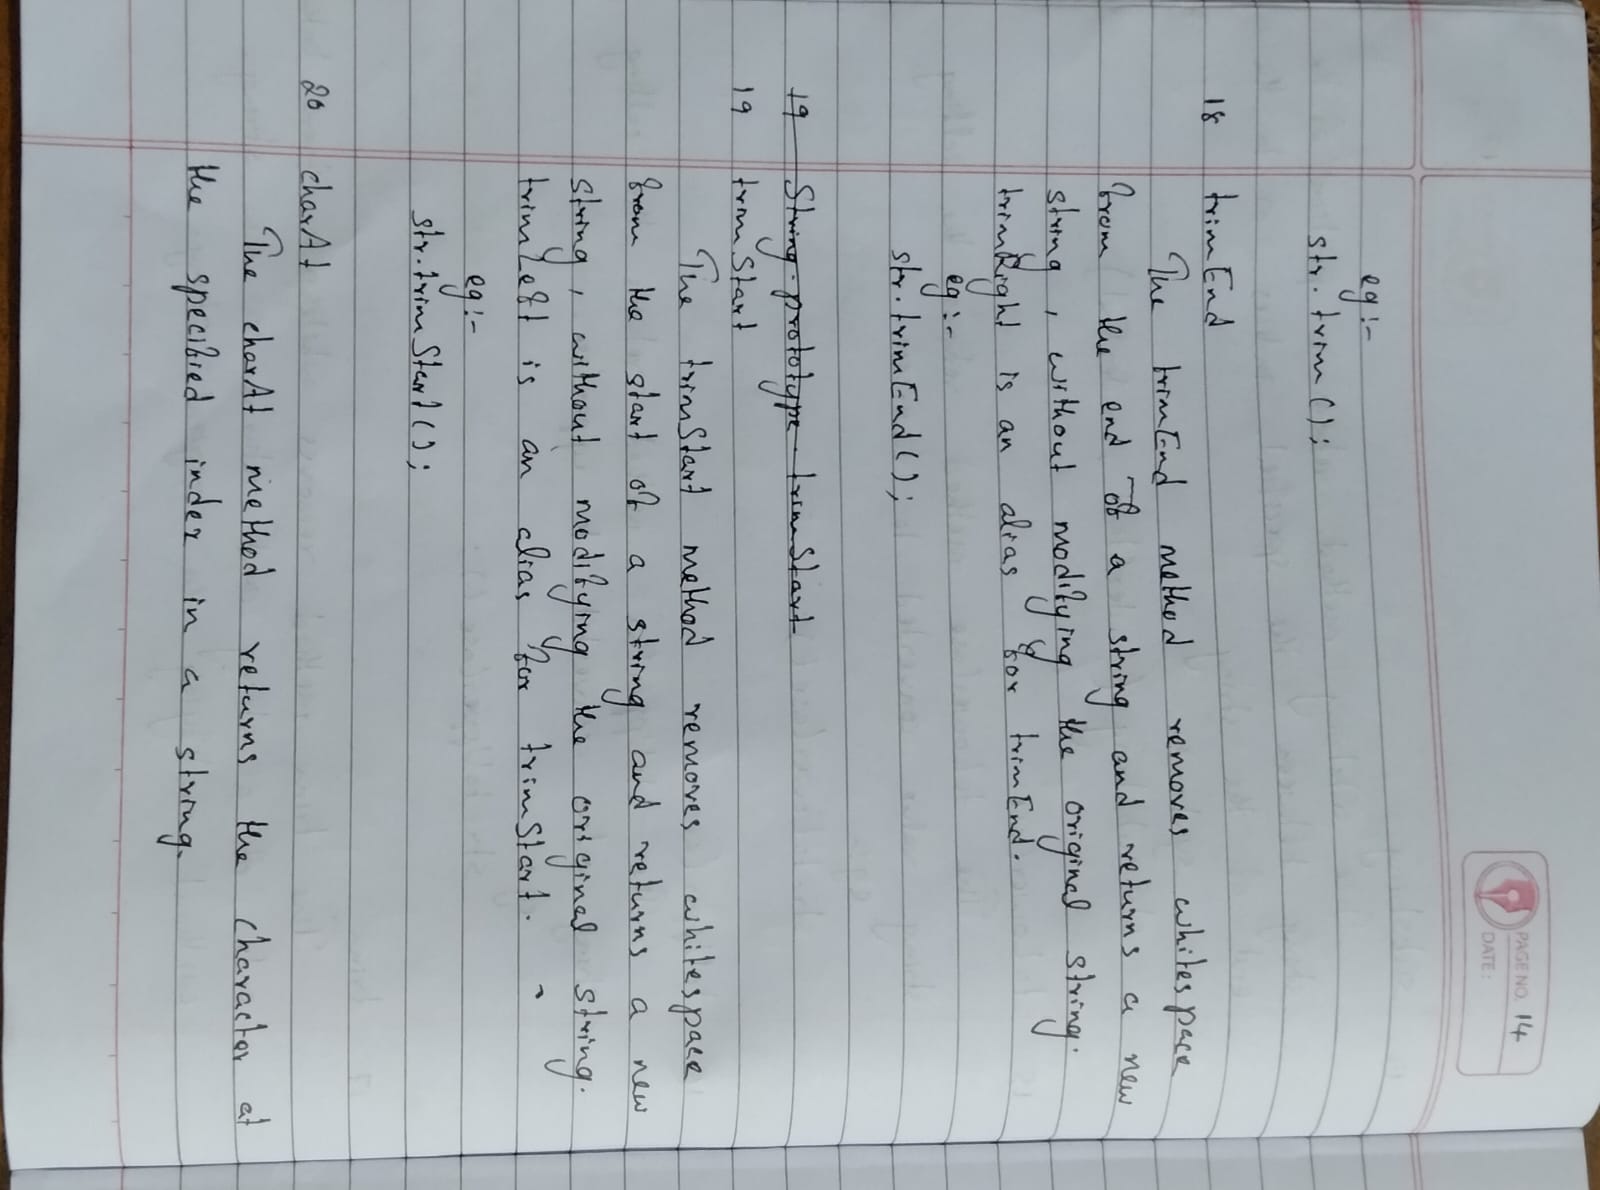 PAGE NO. 14
DATE:
eg:-
str. trim ();
18 trimEnd
The trimEnd method removes whitespace
from the end of a string and returns a new
string, without modifying the original string.
trimRight is an alias for trimEnd.
eg:-
str. trimEnd();
19 String.prototype.trimStart
19 trimStart
The trimStart method removes whitespace
from the start of a string and returns a new
string, without modifying the original string.
trimLeft is an alias for trimStart.
eg:-
str.trimStart();
20 charAt
The charAt method returns the character at
the specified index in a string.